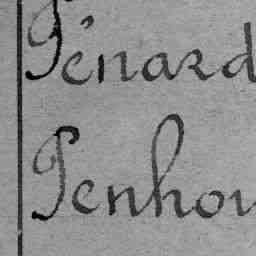 Pénard
Penhou